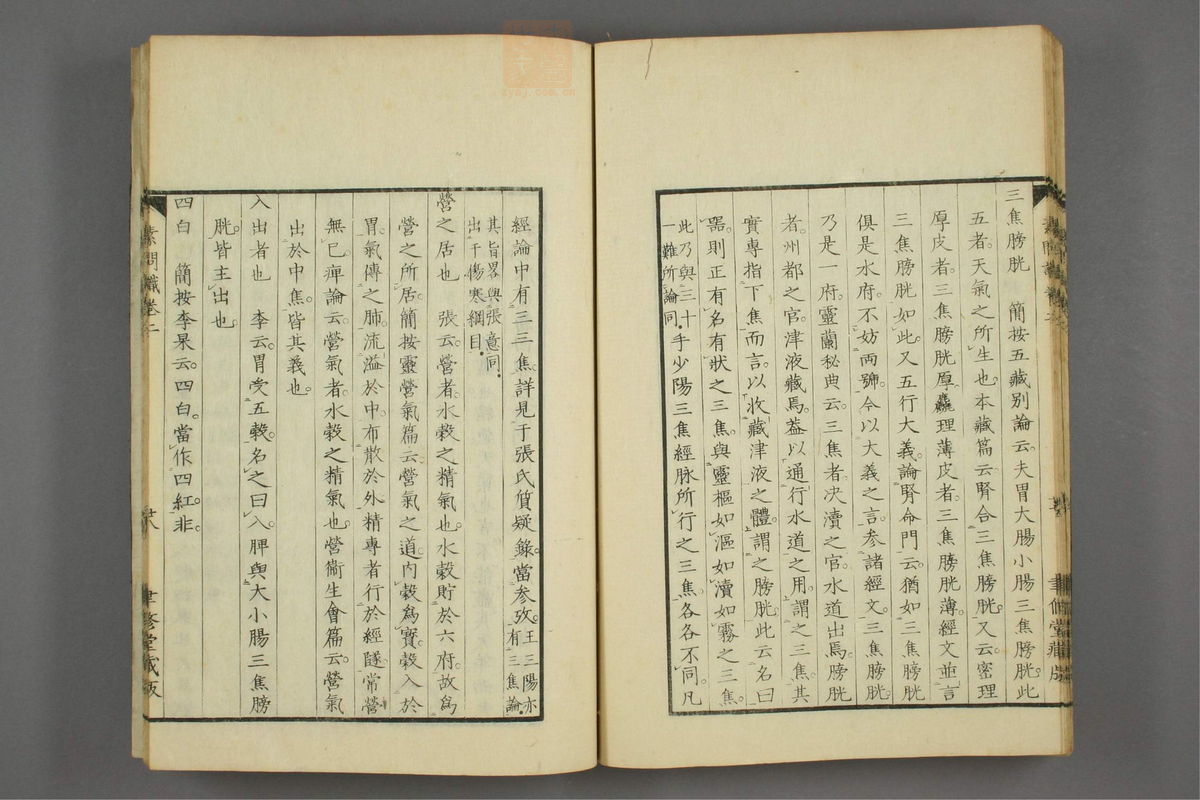 三焦膀胱　簡按五藏别論云夫胃大腸小腸三焦膀胱此
五者天氣之所生也本藏篇云腎合三焦膀胱又云密理
厚皮者三焦膀胱厚麤理薄皮者三焦膀胱薄經文並言
三焦膀胱如此又五行大義論腎命門云猶如三焦膀胱
俱是水府不妨兩號今以大義之言參諸經文三焦膀胱
乃是一府靈蘭秘典云三焦者决瀆之官水道出焉膀胱
者州都之官津液藏焉葢以通行水道之用謂之三焦其
實專指下焦而言以收藏津液之體謂之膀胱此云名曰
器則正有名有狀之三焦與靈樞如漚如瀆如霧之三焦
此乃與三十
一難所論同手少陽三焦經脉所行之三焦各各不同凡
素問識卷二
聿修堂藏版
經論中有三三焦詳見于張氏質疑錄當參攷王三陽亦
有三焦論
其旨畧與張意同
出于傷寒綱目
營之居也　張云營者水穀之精氣也水穀貯於六府故爲
營之所居簡按靈營氣篇云營氣之道内穀爲寶穀入於
胃氣傳之肺流溢於中布散於外精專者行於經隧常營
無已痺論云營氣者水穀之精氣也營衞生會篇云營氣
出於中焦皆其義也
入出者也　李云胃受五穀名之曰入脾與大小腸三焦膀
胱皆主出也
四白　簡按李杲云四白當作四紅非
素問識卷二
廿八
聿修堂藏版